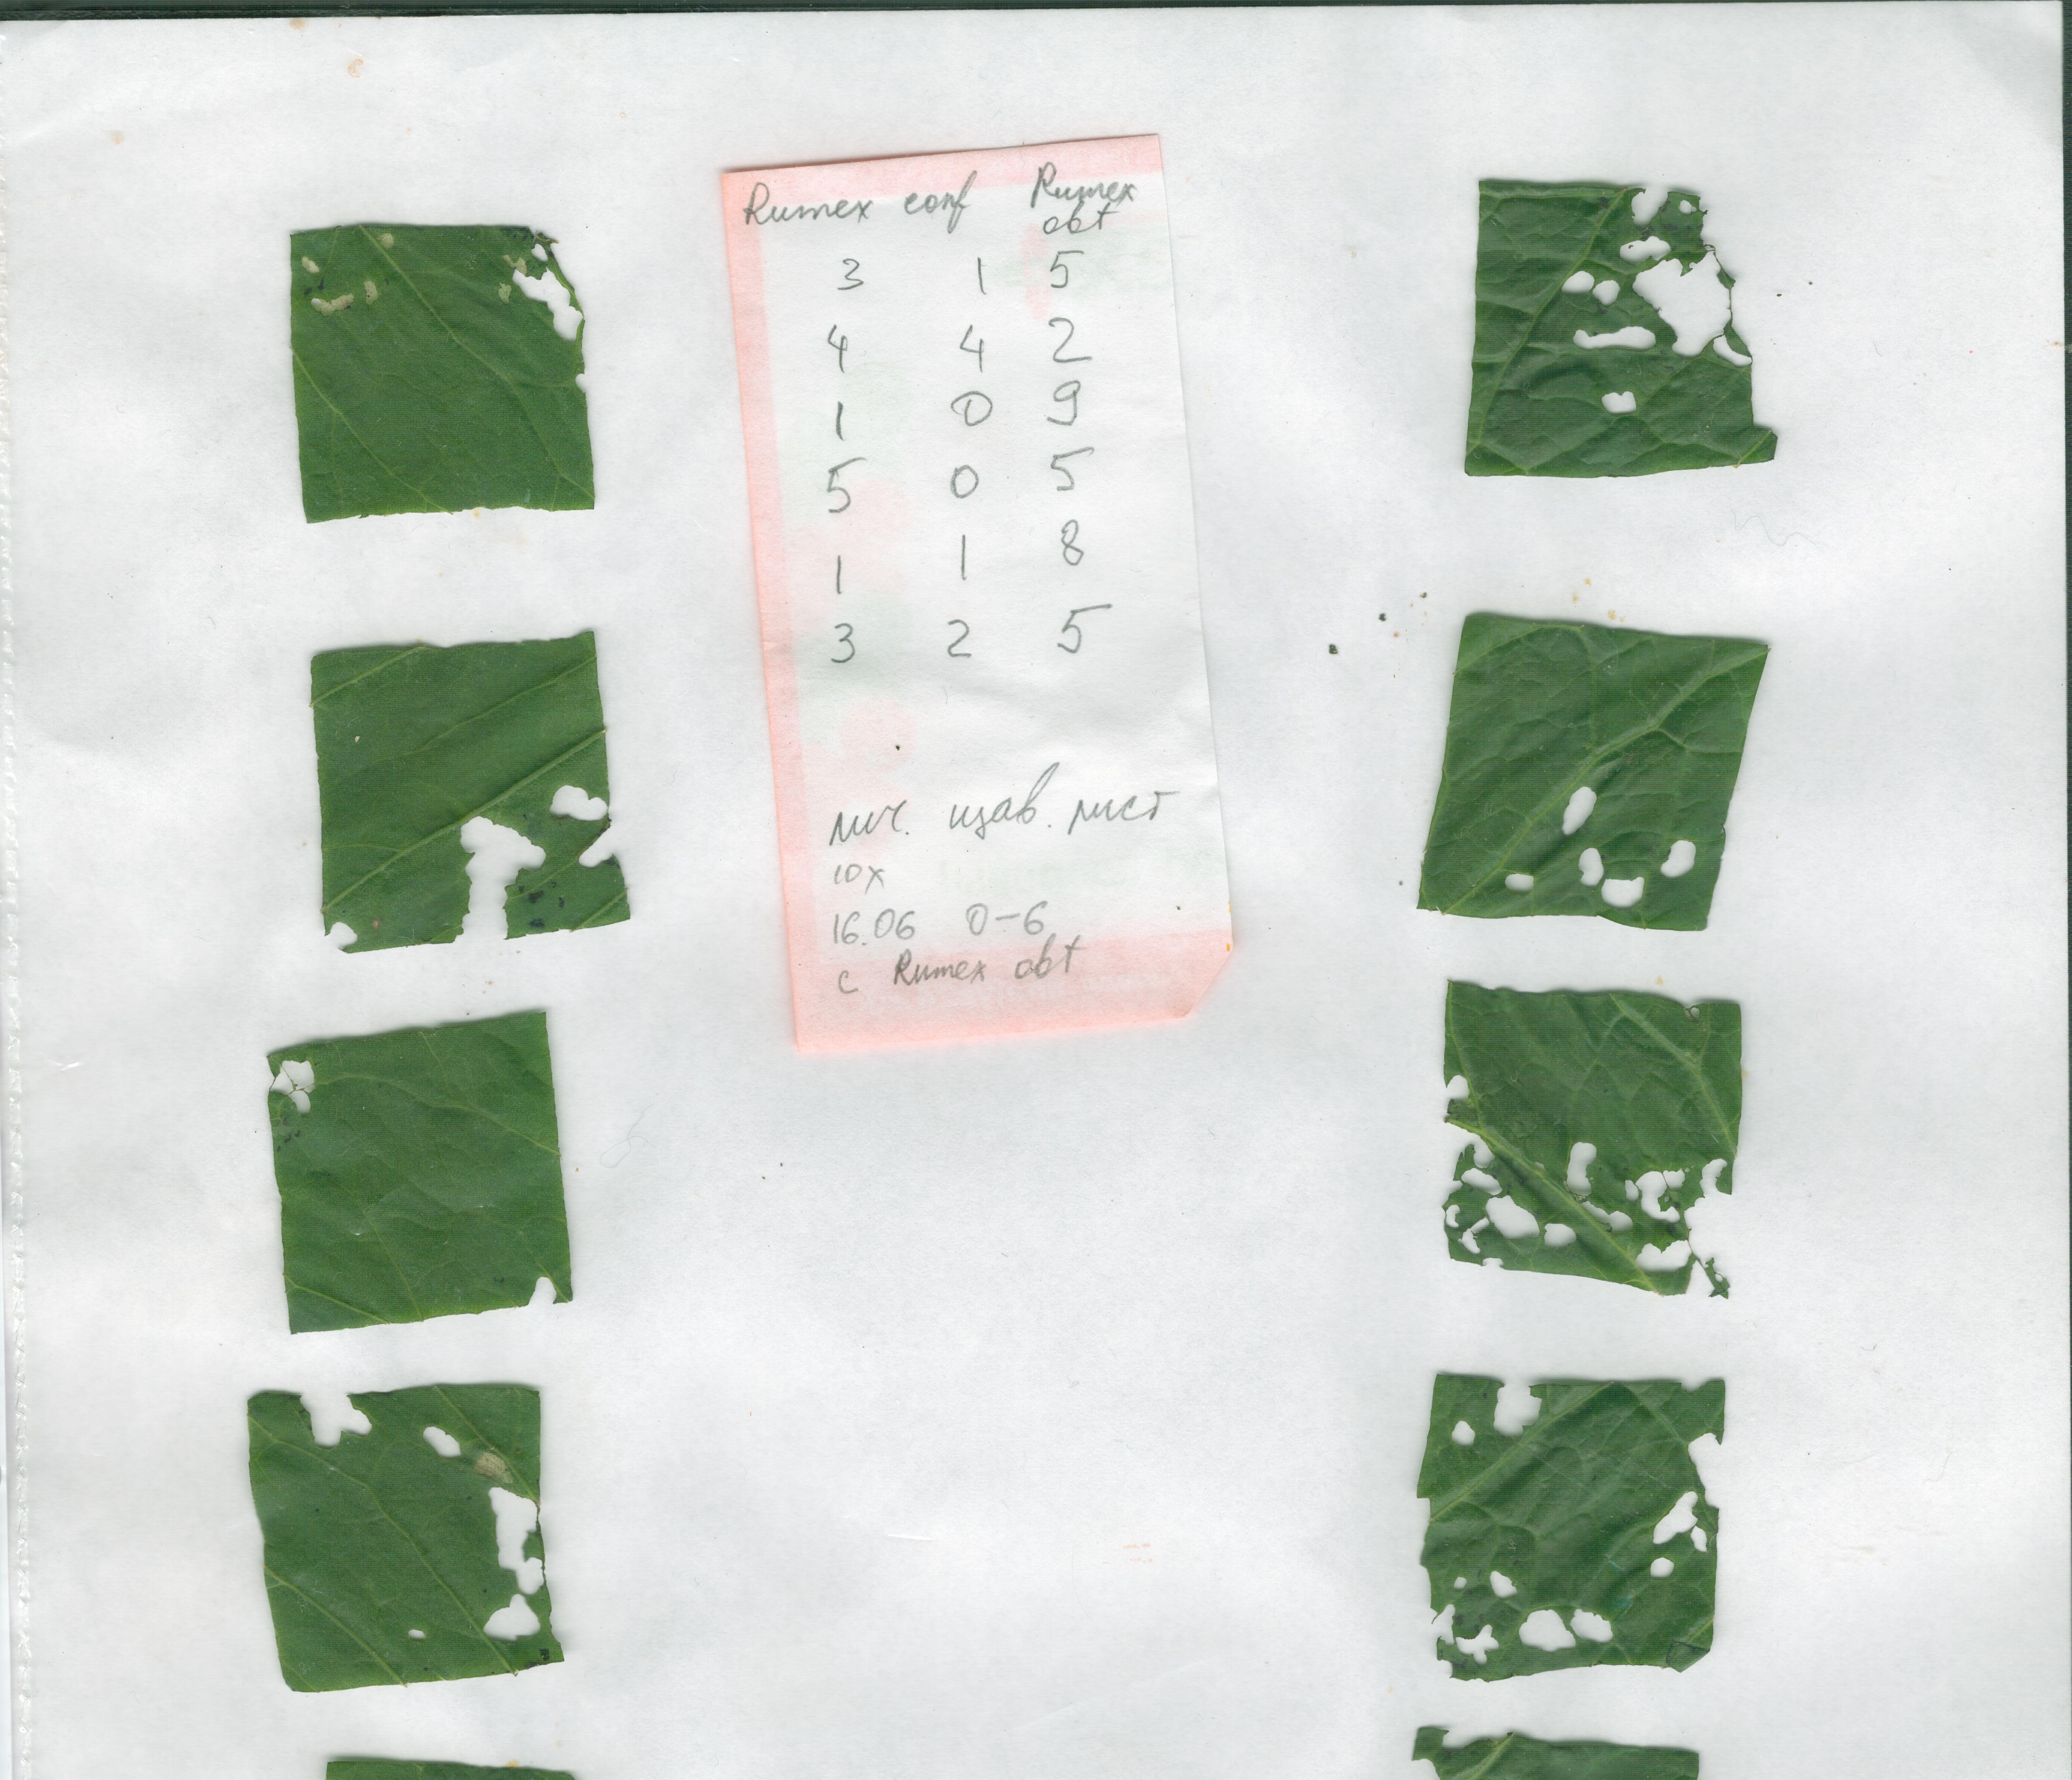 Rumex conf Rumex obt
3 1 5
4 4 2
1 0 9
5 0 5
1 1 8
3 2 5
лич. щав. лист
10x
16.06 0-6
с Rumex obt